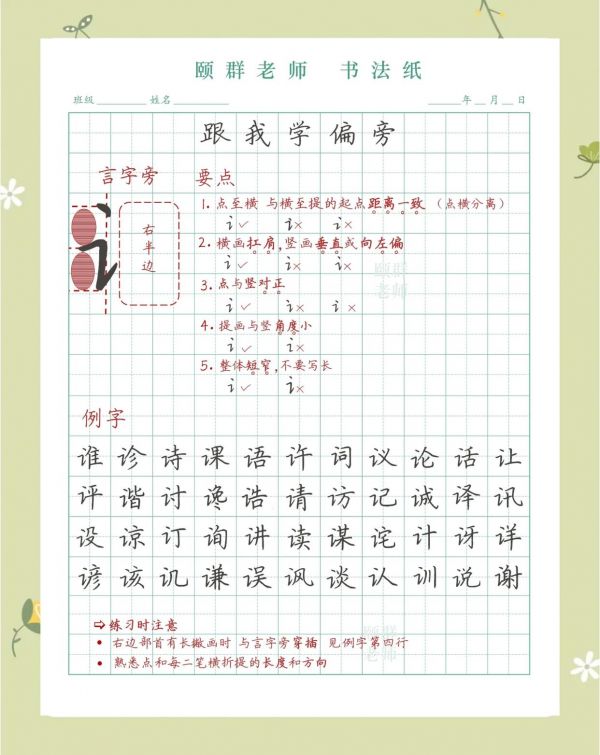 颐群老师 书法纸
班级 姓名 年 月 日
跟我学偏旁
言字旁 要点
右半边
1. 点至横 与横至提的起点距离一致 (点横分离)
讠✓ 讠× 讠×
2. 横画扛肩,竖画垂直或向左偏
讠✓ 讠× 讠×
3. 点与竖对正
讠✓ 讠× 讠×
4. 提画与竖角度小
讠✓ 讠×
5. 整体短窄,不要写长
讠✓ 讠×
颐群老师
例字
谁诊诗课语许词议论话让
评谐讨谗诰请访记诚译讯
设谅订询讲读谋诧计讶详
谚该讥谦误讽谈认训说谢
⇨ 练习时注意
• 右边部首有长撇画时 与言字旁穿插 见例字第四行
• 熟悉点和每二笔横折提的长度和方向
颐群老师